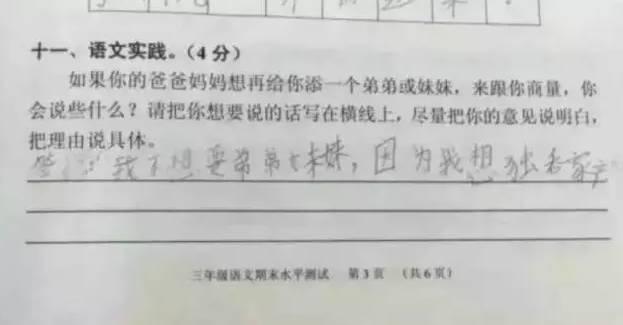 十一、语文实践。(4分)
如果你的爸爸妈妈想再给你添一个弟弟或妹妹,来跟你商量,你
会说些什么?请把你想要说的话写在横线上,尽量把你的意见说明白,
把理由说具体。
答:我不想要弟弟妹妹,因为我想独吞家产
三年级语文期末水平测试 第3页 (共6页)